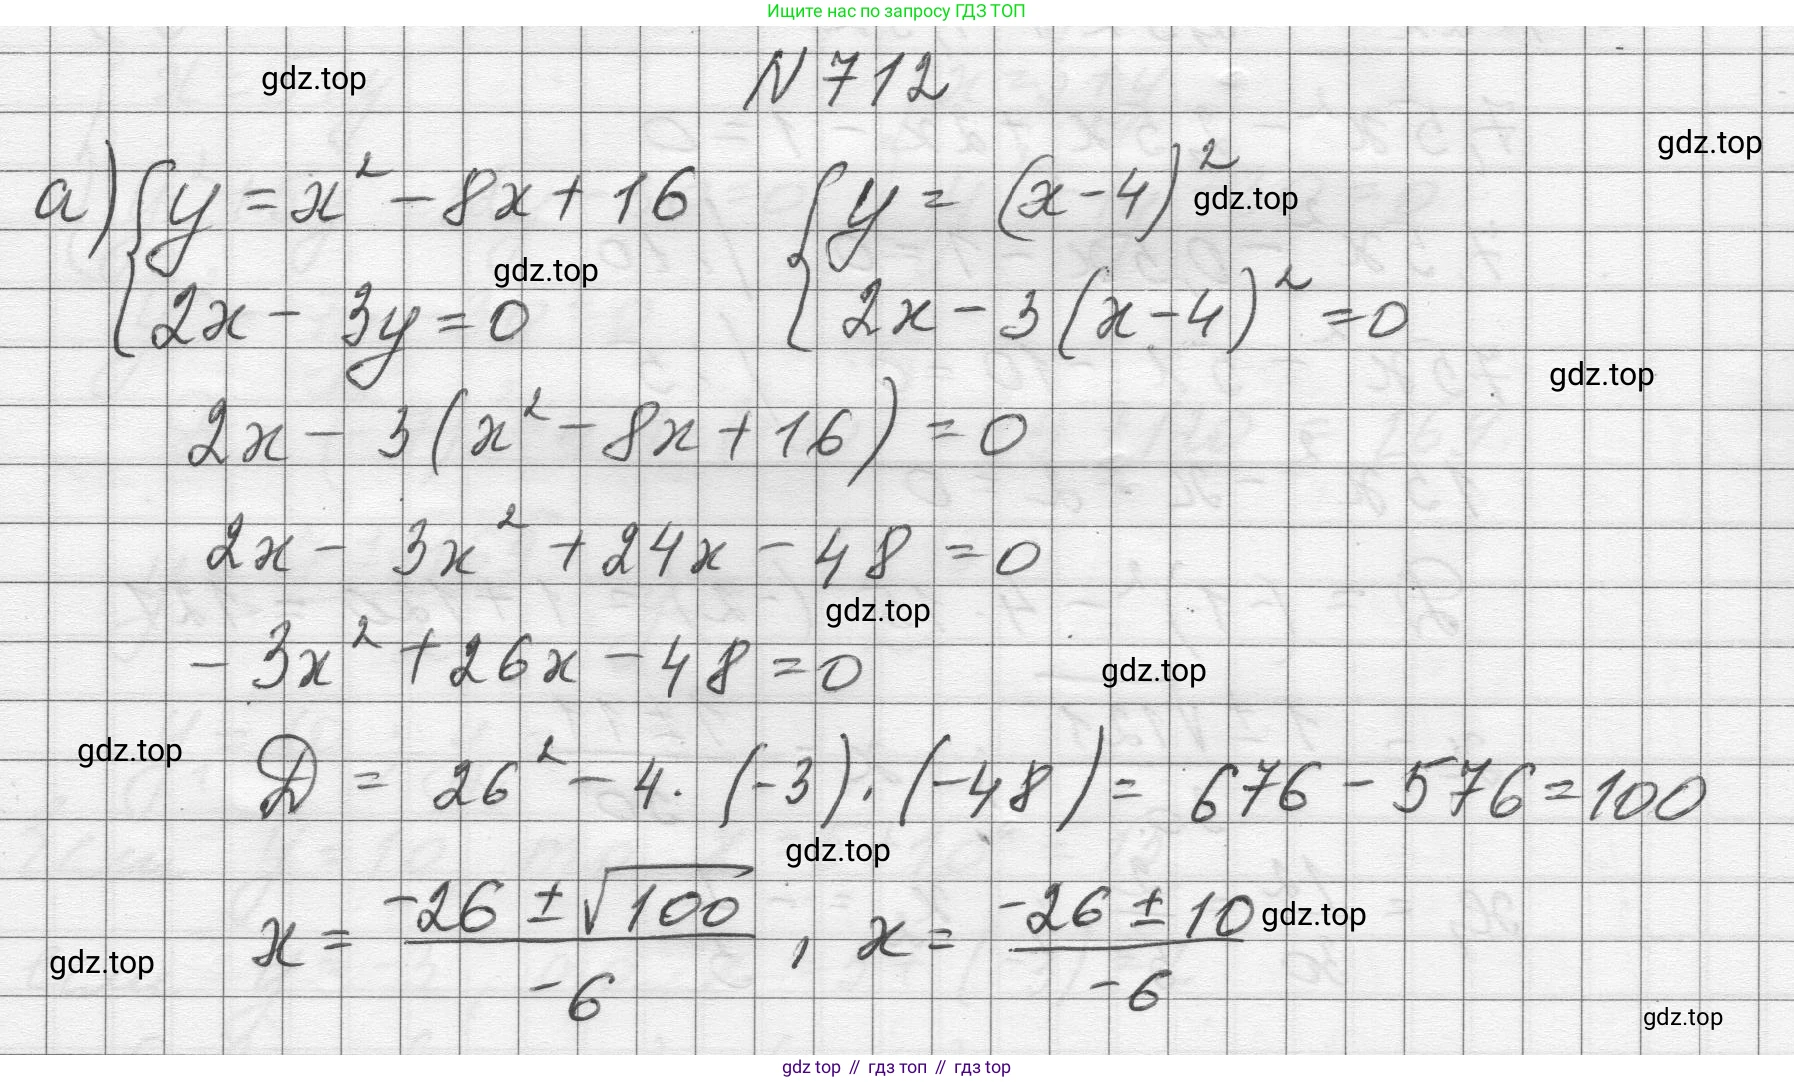 Ищите нас по запросу ГДЗ ТОП
N 712
gdz.top
gdz.top
а) { y = x² - 8x + 16 { y = (x - 4)²
gdz.top
gdz.top
2x - 3y = 0 2x - 3(x - 4)² = 0
gdz.top
2x - 3(x² - 8x + 16) = 0
2x - 3x² + 24x - 48 = 0
gdz.top
- 3x² + 26x - 48 = 0
gdz.top
gdz.top
D = 26² - 4 · (-3) · (-48) = 676 - 576 = 100
gdz.top
x = (-26 ± √100) / -6 , x = (-26 ± 10) / -6
gdz.top
gdz.top
gdz.top
gdz top // гдз топ // гдз top